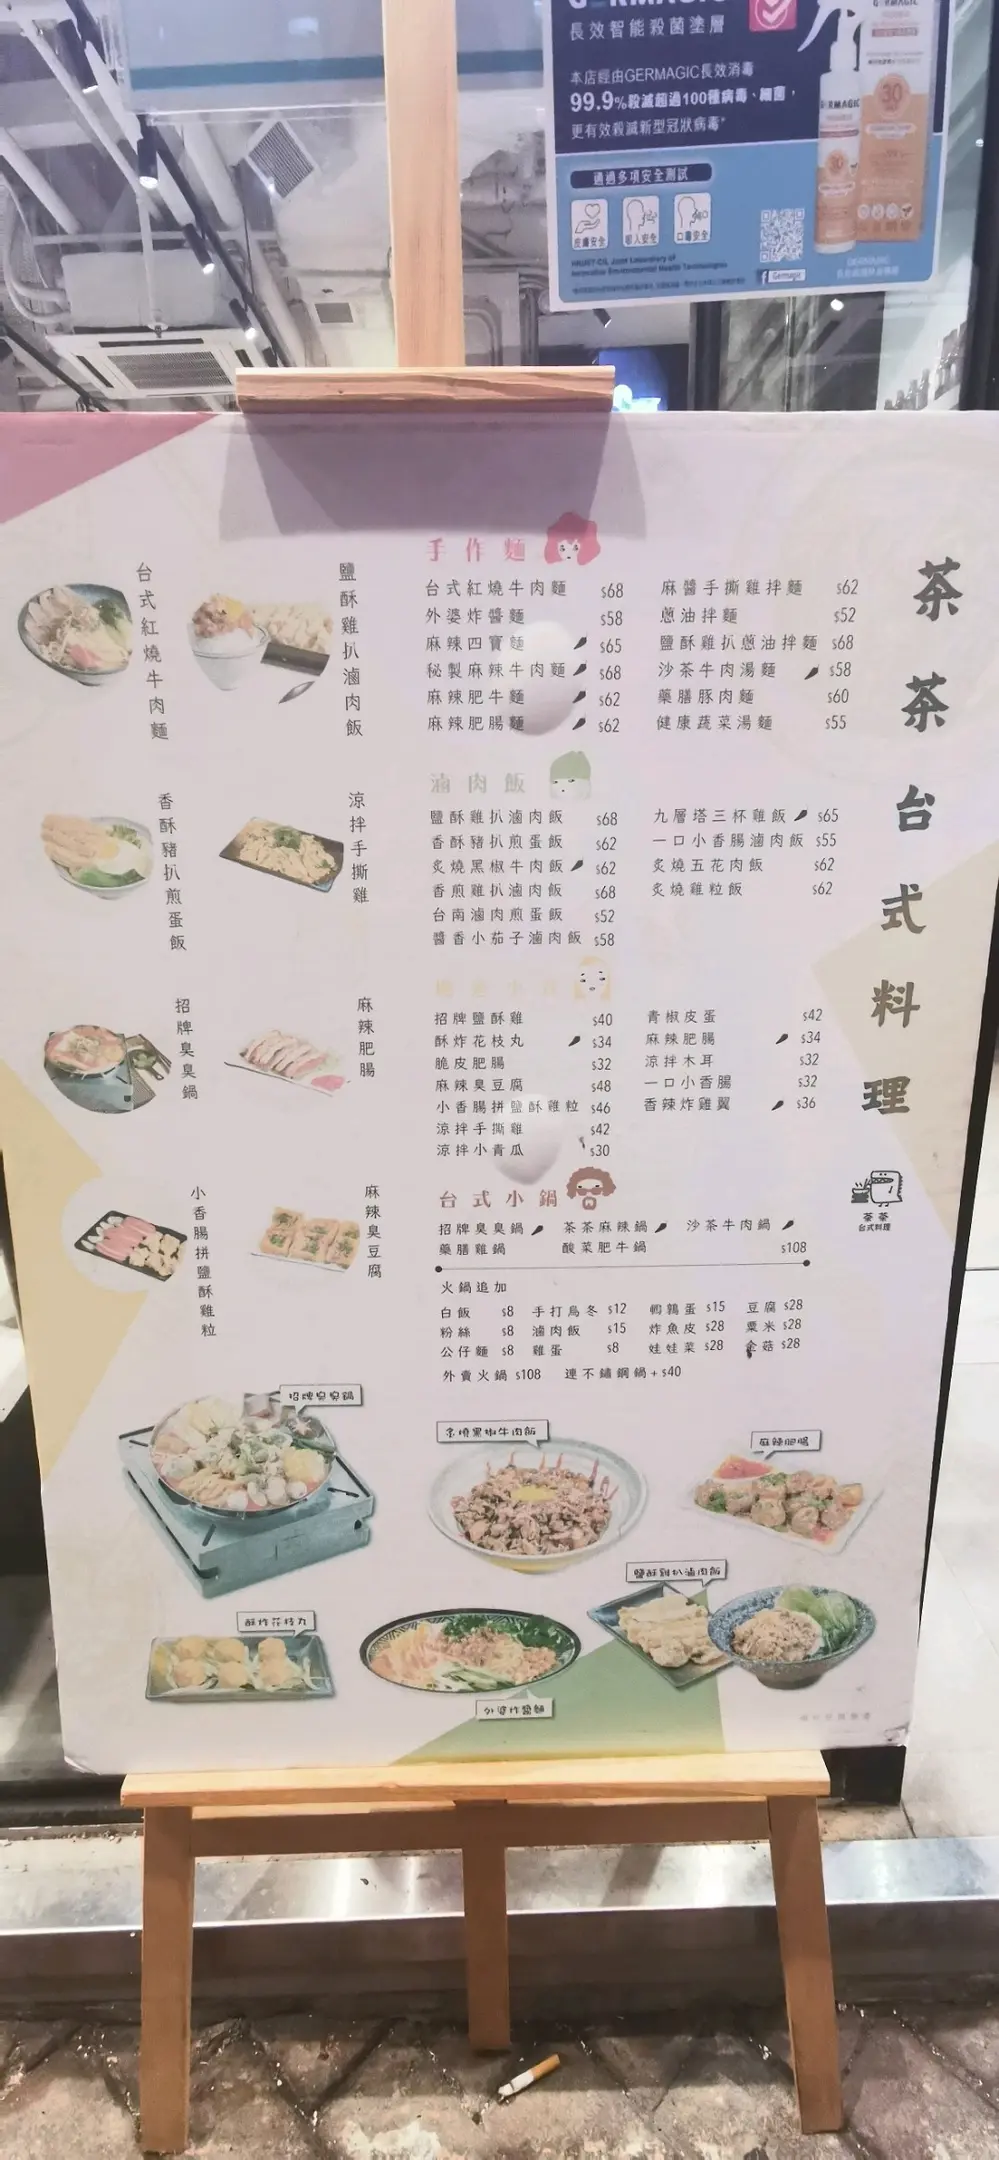 長效智能殺菌塗層
本店經由GERMAGIC長效消毒
99.9%殺滅超過100種病毒、細菌，
更有效殺滅新型冠狀病毒*
通過多項安全測試
皮膚安全 吸入安全 口毒安全
HKUST-CIL Joint Laboratory of
Innovative Environmental Health Technologies
Germagic
GERMAGIC
30
茶茶台式料理
茶茶
台式料理
台式紅燒牛肉麵
鹽酥雞扒滷肉飯
香酥豬扒煎蛋飯
涼拌手撕雞
招牌臭臭鍋
麻辣肥腸
小香腸拼鹽酥雞粒
麻辣臭豆腐
手作麵
台式紅燒牛肉麵 $68
外婆炸醬麵 $58
麻辣四寶麵 $65
秘製麻辣牛肉麵 $68
麻辣肥牛麵 $62
麻辣肥腸麵 $62
麻醬手撕雞拌麵 $62
蔥油拌麵 $52
鹽酥雞扒蔥油拌麵 $68
沙茶牛肉湯麵 $58
藥膳豚肉麵 $60
健康蔬菜湯麵 $55
滷肉飯
鹽酥雞扒滷肉飯 $68
香酥豬扒煎蛋飯 $62
炙燒黑椒牛肉飯 $62
香煎雞扒滷肉飯 $68
台南滷肉煎蛋飯 $52
醬香小茄子滷肉飯 $58
九層塔三杯雞飯 $65
一口小香腸滷肉飯 $55
炙燒五花肉飯 $62
炙燒雞粒飯 $62
招牌鹽酥雞 $40
酥炸花枝丸 $34
脆皮肥腸 $32
麻辣臭豆腐 $48
小香腸拼鹽酥雞粒 $46
涼拌手撕雞 $42
涼拌小青瓜 $30
青椒皮蛋 $42
麻辣肥腸 $34
涼拌木耳 $32
一口小香腸 $32
香辣炸雞翼 $36
台式小鍋
招牌臭臭鍋 茶茶麻辣鍋 沙茶牛肉鍋
藥膳雞鍋 酸菜肥牛鍋 $108
火鍋追加
白飯 $8 手打烏冬 $12 鵪鶉蛋 $15 豆腐 $28
粉絲 $8 滷肉飯 $15 炸魚皮 $28 粟米 $28
公仔麵 $8 雞蛋 $8 娃娃菜 $28 金菇 $28
外賣火鍋 $108 連不鏽鋼鍋+$40
招牌臭臭鍋
炙燒黑椒牛肉飯
麻辣肥腸
鹽酥雞扒滷肉飯
酥炸花枝丸
外婆炸醬麵